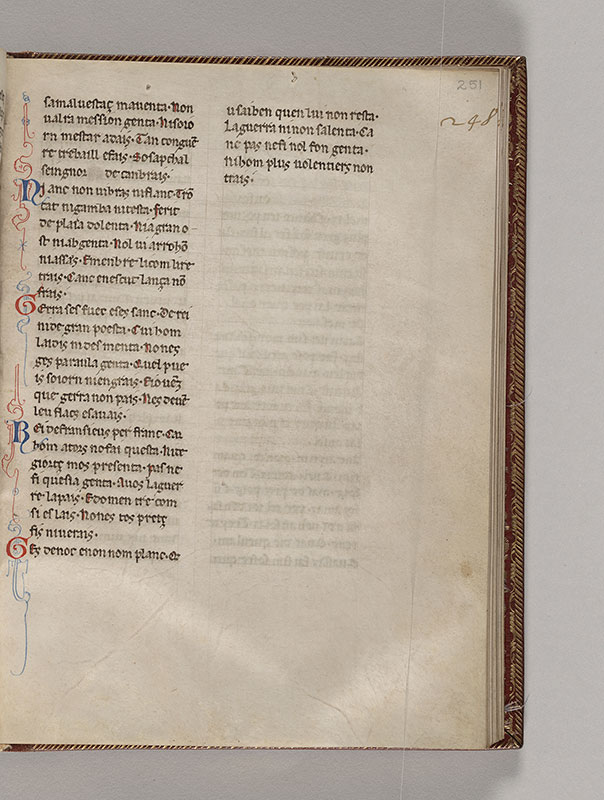 251
248
samaluestaç mauenta· Non
ual sa mession genta· Ni soio
rn mestar adais· Tan conquer
re trebaill e fais· Sosapchal
seingnor de canbrais·
Ni anc non uibras ni flanc· Tro
tar ni gamba ni testa· ferit
de plasa dolenta· Nia gran o
st ni ab genta· Nol ui arrohõ
ni assais· E men bre li com lire
trais· Canc en escut lança nõ
frais·
Gerra ses fuec e ses sanc· De rei
ni de gran poesta· Cui hom
laidis ni desmenta· No nes
ges paraula genta· Quel pue
is soiorn ni engrais· E iouez
que gerra non pais· Nes deuẽ
leu flacs e sauais·
Rei de fransi eus per franc· Cu
hom atorz no fai questa· Ni de
giorç mos presenta· pas ne
fi questa genta· Auos la guer
re la pais· E domen tre com
si es lais· No nes tos pretz
fis ni uerais·
Ges de noc e non nom planc· Er
u saiben quen lui non resta·
La guerra ni non salenta· Ca
nc pas ne fi nol fon genta·
ni hom plus uolentiers non
trais·